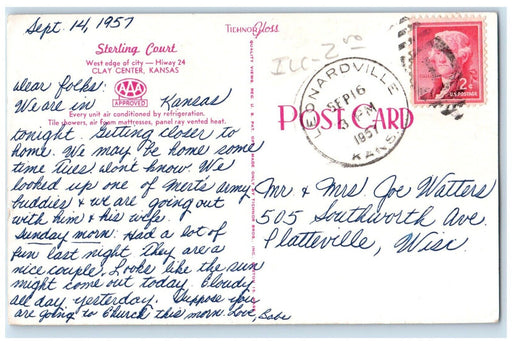 Sept. 14, 1957
TECHNOR Gloss
Sterling Court
West edge of city — Hiway 24
CLAY CENTER, KANSAS
AAA
APPROVED
Every unit air conditioned by refrigeration.
Tile showers, air foam mattresses, panel ray vented heat.
Dear folks:
We are in Kansas
tonight. Getting closer to
home. We may be home some
time Tues. don't know. We
looked up one of Mert's army
buddies & we are going out
with him & his wife.
Sunday morn: Had a lot of
fun last night. They are a
nice couple. Looks like the sun
might come out today. Cloudy
all day yesterday. Suppose you
are going to Church this morn. Love, Babe
POST CARD
LEONARDVILLE
SEP 16
PM
1957
KANS.
2¢
U.S. POSTAGE
Mr & Mrs Joe Watters
505 Southworth Ave.
Platteville, Wisc